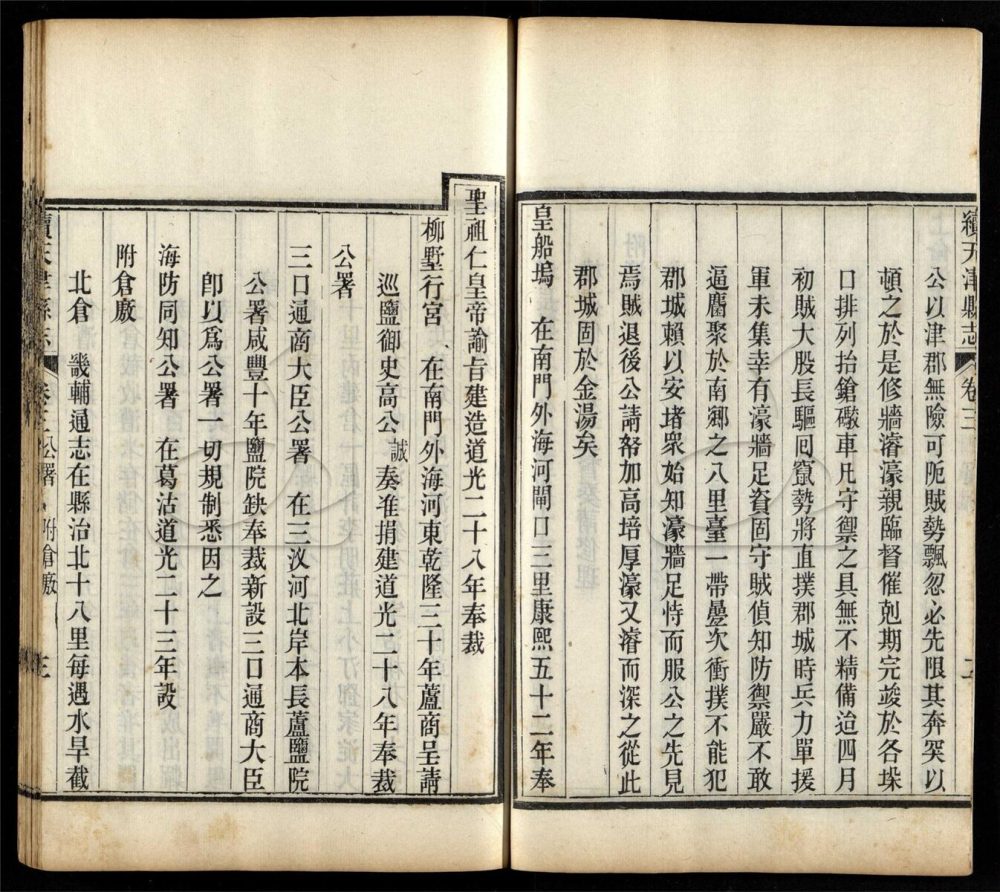 續天津縣志 卷三 二
公以津郡無險可阨賊勢飄忽必先限其奔突以
頓之於是修牆濬濠親臨督催剋期完竣於各垛
口排列抬鎗礮車凡守禦之具無不精備迨四月
初賊大股長驅回竄勢將直撲郡城時兵力單援
軍未集幸有濠牆足資固守賊偵知防禦嚴不敢
逼麕聚於南鄉之八里臺一帶疊次衝撲不能犯
郡城賴以安堵衆始知濠牆足恃而服公之先見
焉賊退後公請帑加高培厚濠又濬而深之從此
郡城固於金湯矣
皇船塢 在南門外海河閘口三里康熙五十二年奉
聖祖仁皇帝諭旨建造道光二十八年奉裁
柳墅行宮 在南門外海河東乾隆三十年蘆商呈請
巡鹽御史高公誠奏准捐建道光二十八年奉裁
公署
三口通商大臣公署 在三汊河北岸本長蘆鹽院
公署咸豐十年鹽院缺奉裁新設三口通商大臣
卽以爲公署一切規制悉因之
海防同知公署 在葛沽道光二十三年設
附倉廒
北倉 畿輔通志在縣治北十八里每遇水旱截
續天津縣志 卷三 公署 附倉廒 三